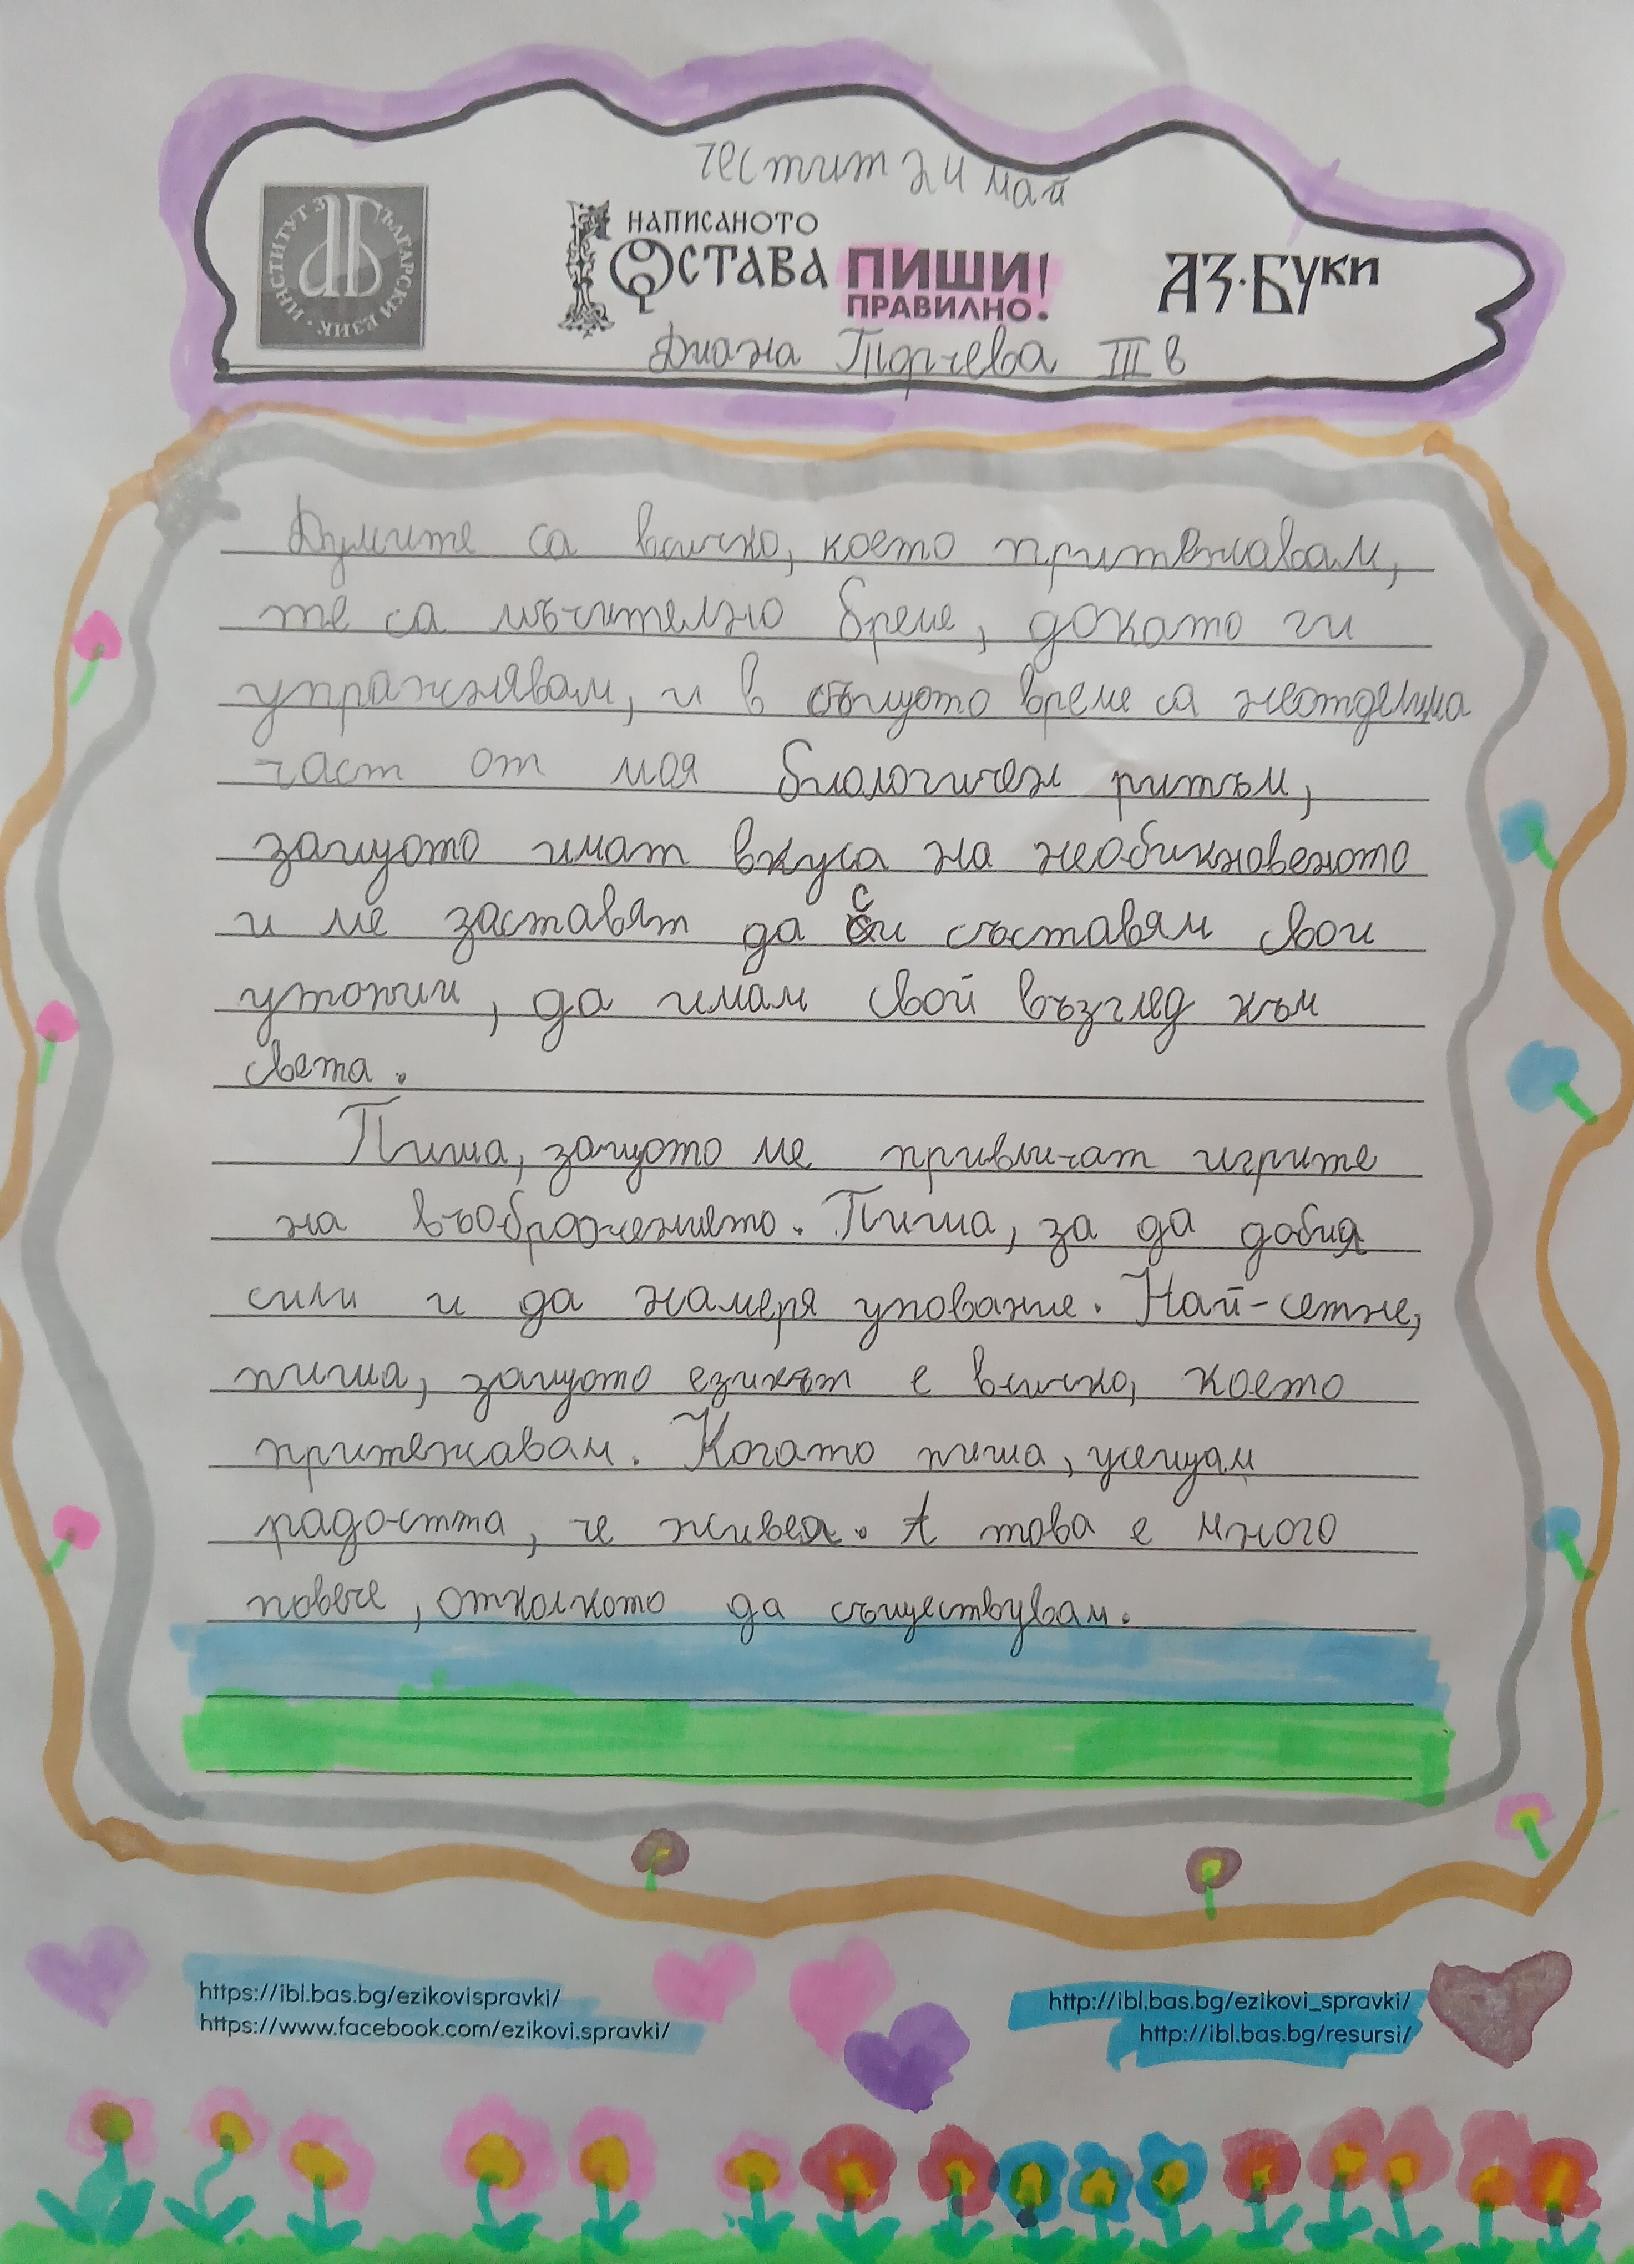 честит 24 май
ИНСТИТУТ ЗА БЪЛГАРСКИ ЕЗИК
НАПИСАНОТО
ОСТАВА ПИШИ!
ПРАВИЛНО.
АЗ·БУКИ
Диана Торчева III в
Думите са всичко, което притежавам,
те са мъчително бреме, докато ги
упражнявам, и в същото време са неотделима
част от моя биологичен ритъм,
защото имат вкуса на необикновеното
и ме заставят да си съставям свои
утопии, да имам свой възглед към
света.
Пиша, защото ме привличат игрите
на въображението. Пиша, за да добия
сили и да намеря упование. Най-сетне,
пиша, защото езикът е всичко, което
притежавам. Когато пиша, усещам
радостта, че живея. А това е много
повече, отколкото да съществувам.
https://ibl.bas.bg/ezikovispravki/
https://www.facebook.com/ezikovi.spravki/
http://ibl.bas.bg/ezikovi_spravki/
http://ibl.bas.bg/resursi/